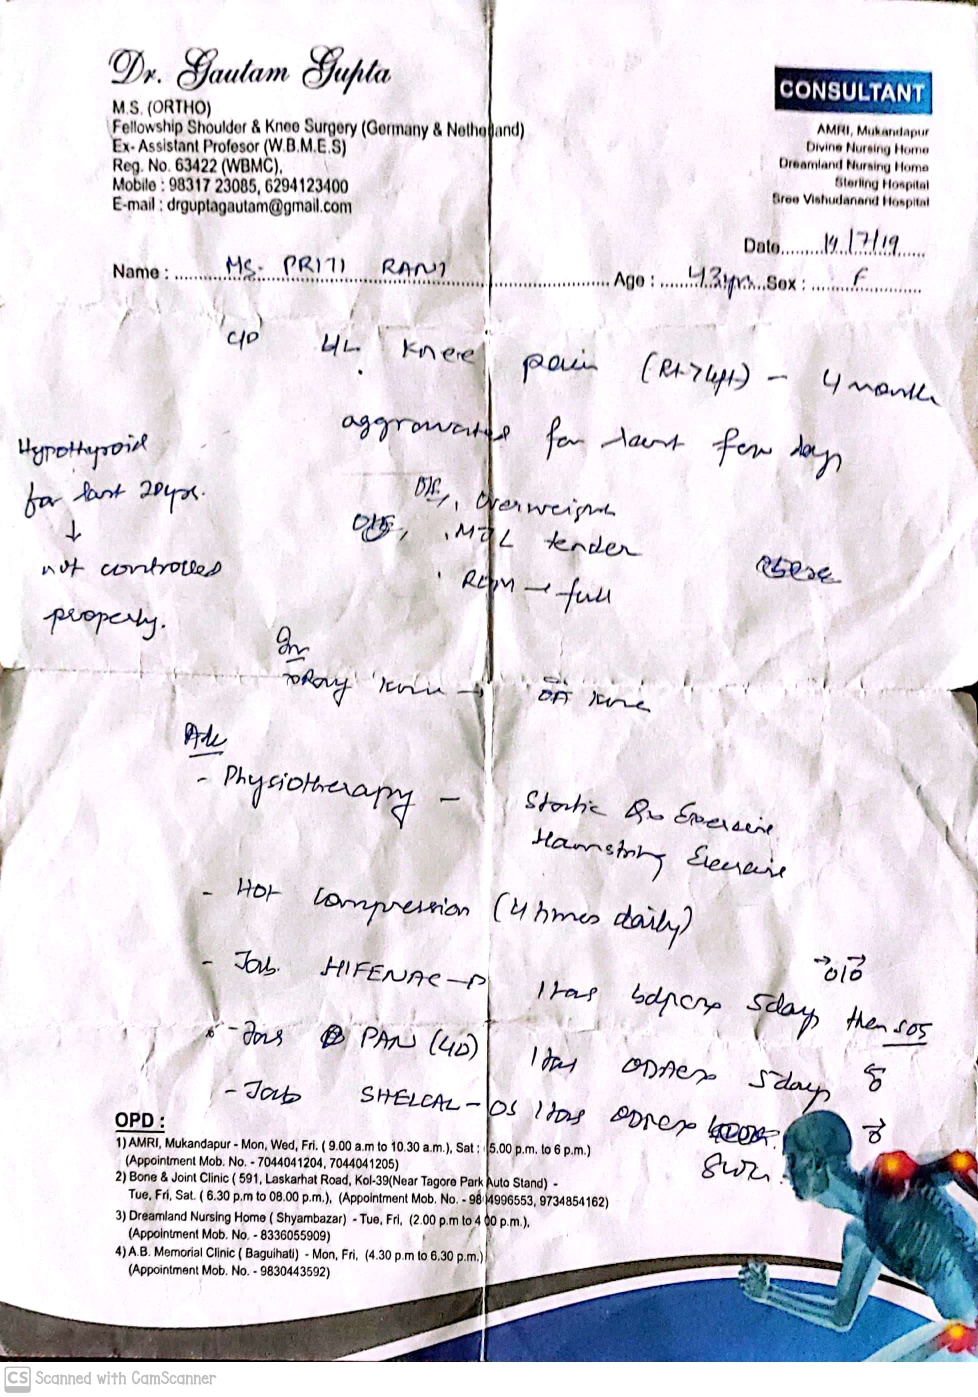 Dr. Gautam Gupta
M.S. (ORTHO)
Fellowship Shoulder & Knee Surgery (Germany & Netherland)
Ex- Assistant Profesor (W.B.M.E.S)
Reg. No. 63422 (WBMC),
Mobile : 98317 23085, 6294123400
E-mail : drguptagautam@gmail.com
CONSULTANT
AMRI, Mukandapur
Divine Nursing Home
Dreamland Nursing Home
Sterling Hospital
Sree Vishudanand Hospital
Date 14/7/19
Name : MS. PRITI RANI Age : 43yrs Sex : F
C/O knee pain (Rt > left) - 4 month
aggravated for last few days
Hypothyroid
for last 20yrs.
↓
not controlled
properly.
O/E, overweight
MJL tender
ROM → full
Inv
XRay knee → OA knee
Adv
- Physiotherapy - Static Qu Exercise
Hamstring Exercise
- Hot compression (4 times daily)
- Tab. HIFENAC-P 1 tab bdpc x 5days then SOS
- Tab PAN (40) 1 tab ODAC x 5days
- Tab SHELCAL-OS 1 tab ODPC x
8wk.
OPD :
1) AMRI, Mukandapur - Mon, Wed, Fri. ( 9.00 a.m to 10.30 a.m.), Sat : (5.00 p.m. to 6 p.m.)
(Appointment Mob. No. - 7044041204, 7044041205)
2) Bone & Joint Clinic ( 591, Laskarhat Road, Kol-39(Near Tagore Park Auto Stand) -
Tue, Fri, Sat. ( 6.30 p.m to 08.00 p.m.), (Appointment Mob. No. - 984996553, 9734854162)
3) Dreamland Nursing Home ( Shyambazar) - Tue, Fri, (2.00 p.m to 4.00 p.m.),
(Appointment Mob. No. - 8336055909)
4) A.B. Memorial Clinic ( Baguihati) - Mon, Fri, (4.30 p.m to 6.30 p.m.)
(Appointment Mob. No. - 9830443592)
CS Scanned with CamScanner